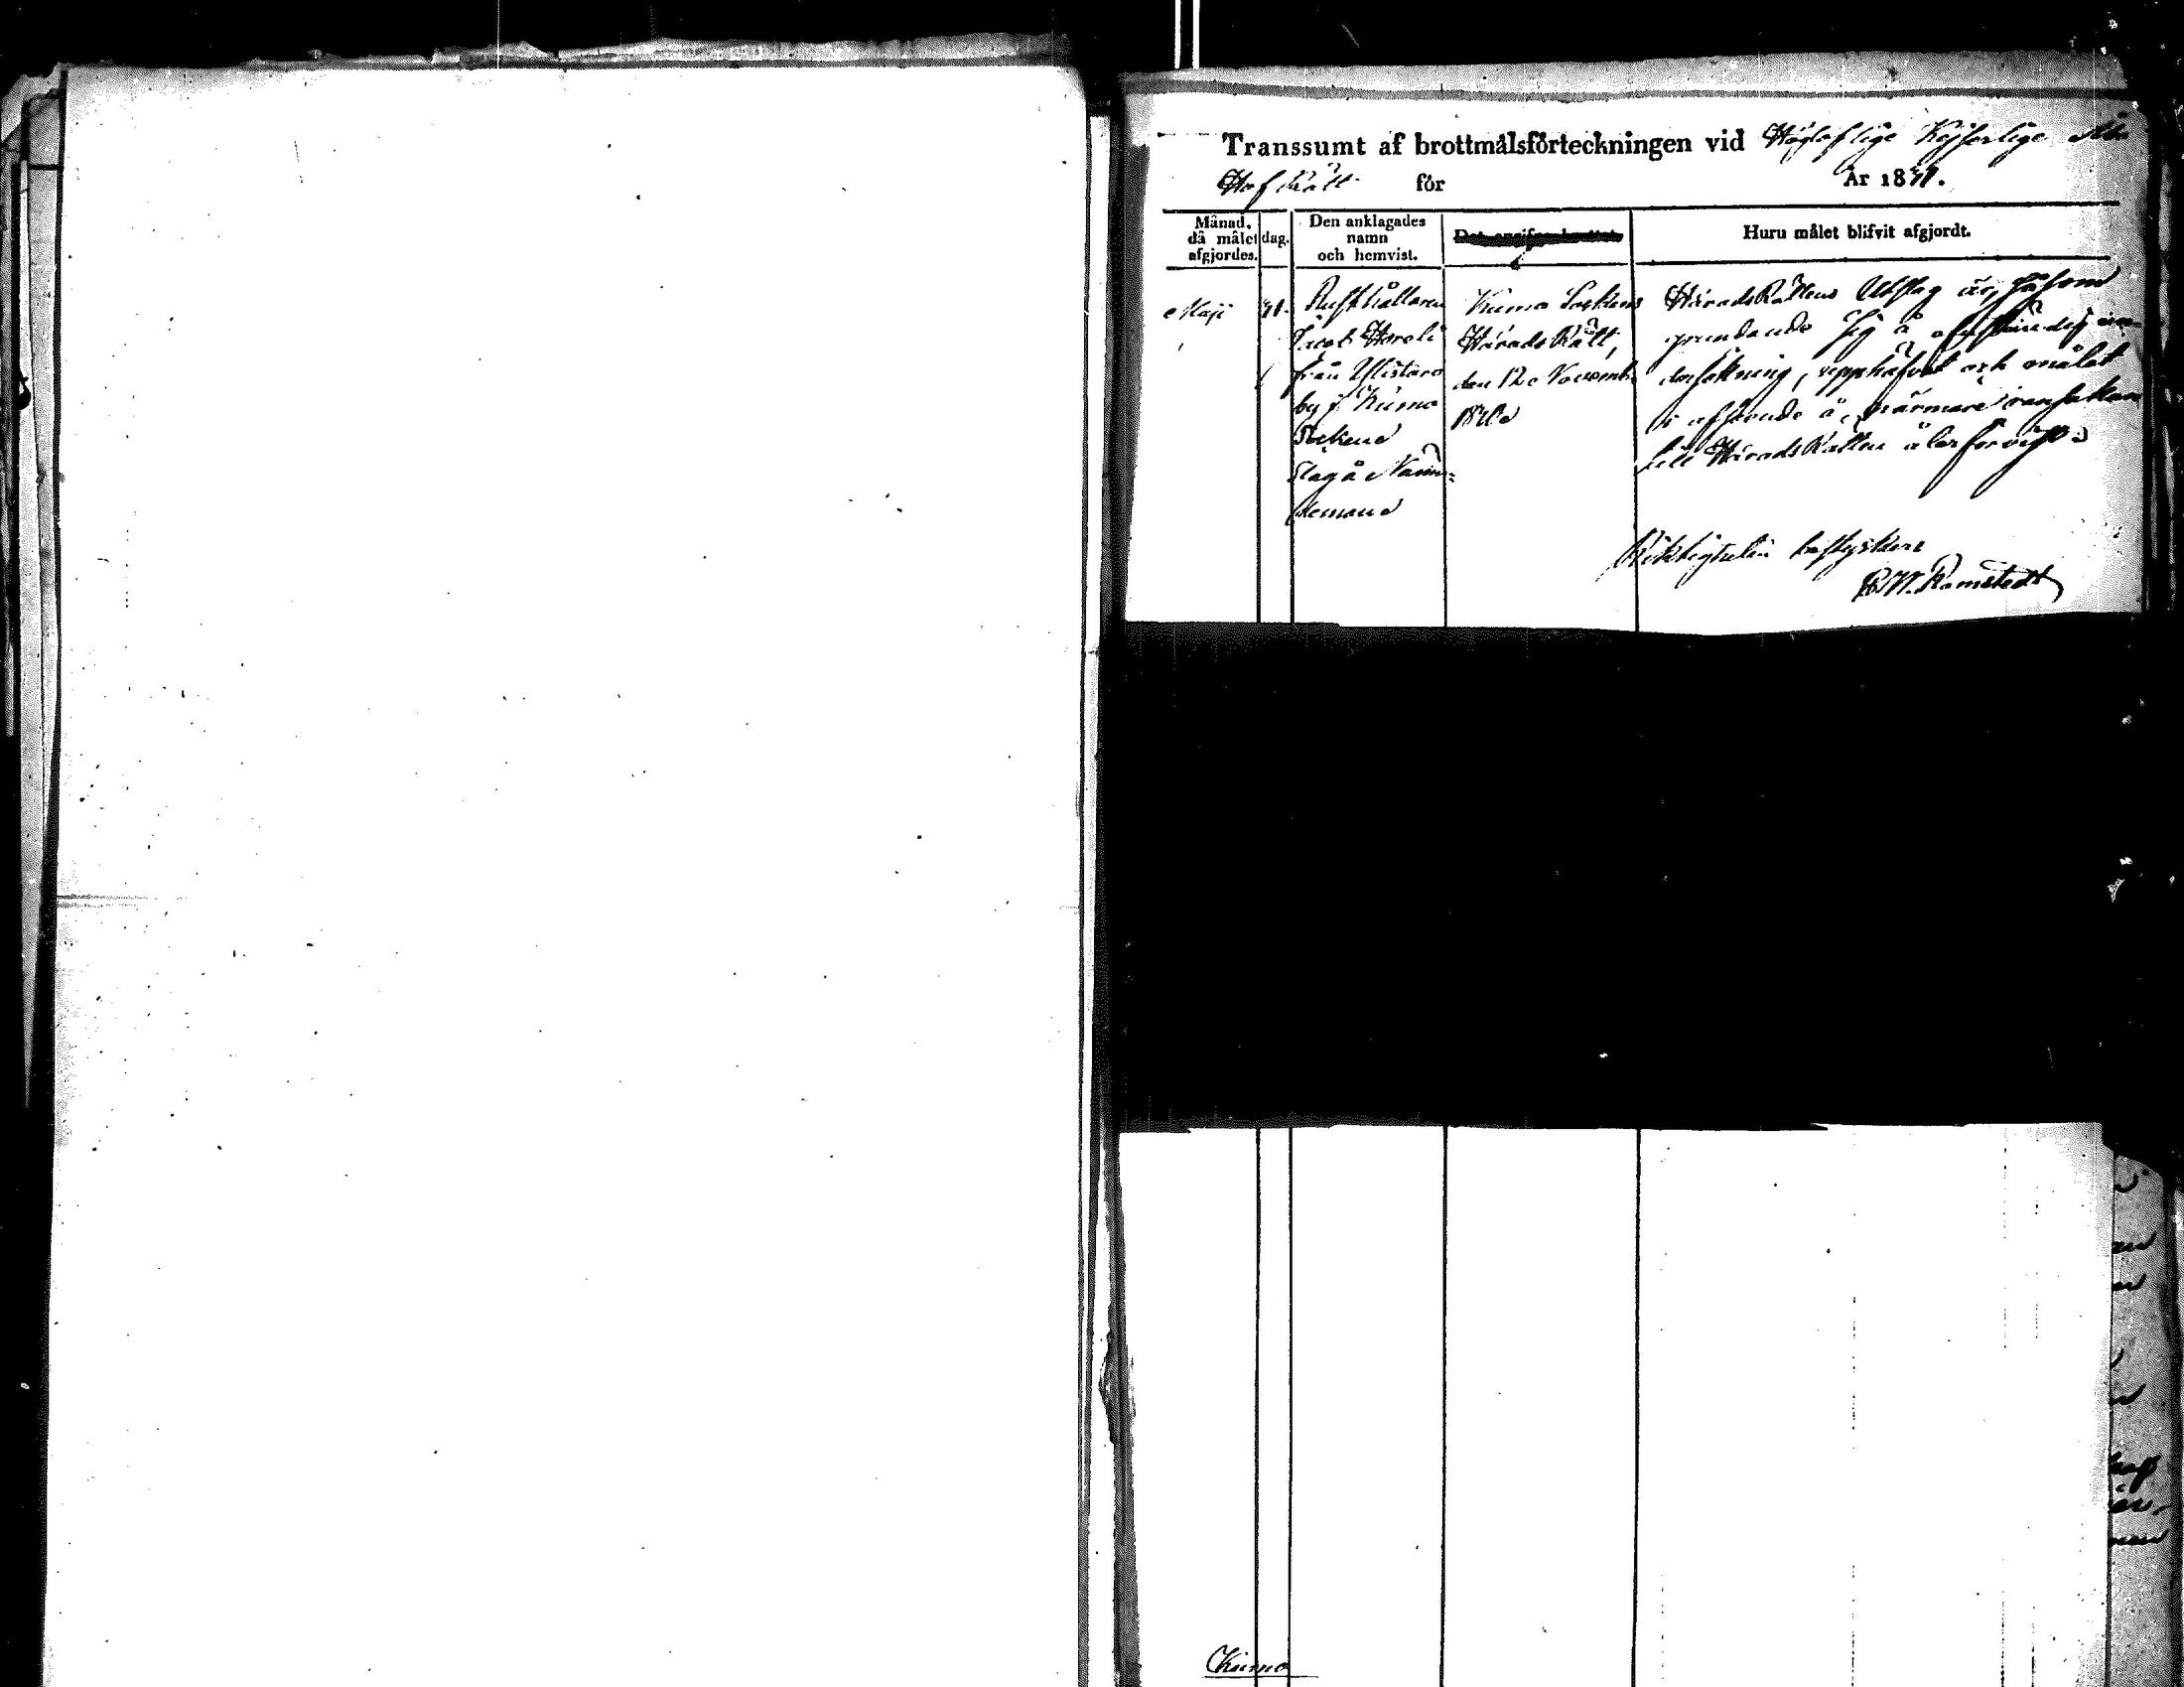 Transsumt af brottmålsförteckningen vid Högloflige Kejserlige Åbo
Hof Rätt för År 1841.
Månad, då målet afgjordes.
dag.
Den anklagades namn och hemvist.
Huru målet blifvit afgjordt.
Maji
Rusthållaren
Jacob Haroli
från Ylistaro
by i Kumo
Sokens
Klagå Nämn=
demand
Kumo Sockens
Härads Rätt,
den 12 Novemb.
1840
HäradsRättens Utslag är, såsom
grundande sig å ofullständig un-
dersökning, upphäfvet och målet
i afseende å närmare ransakan
till HäradsRätten återförvist.
Riktigheten bestyrker
R.W. Ramstedt
Kumo